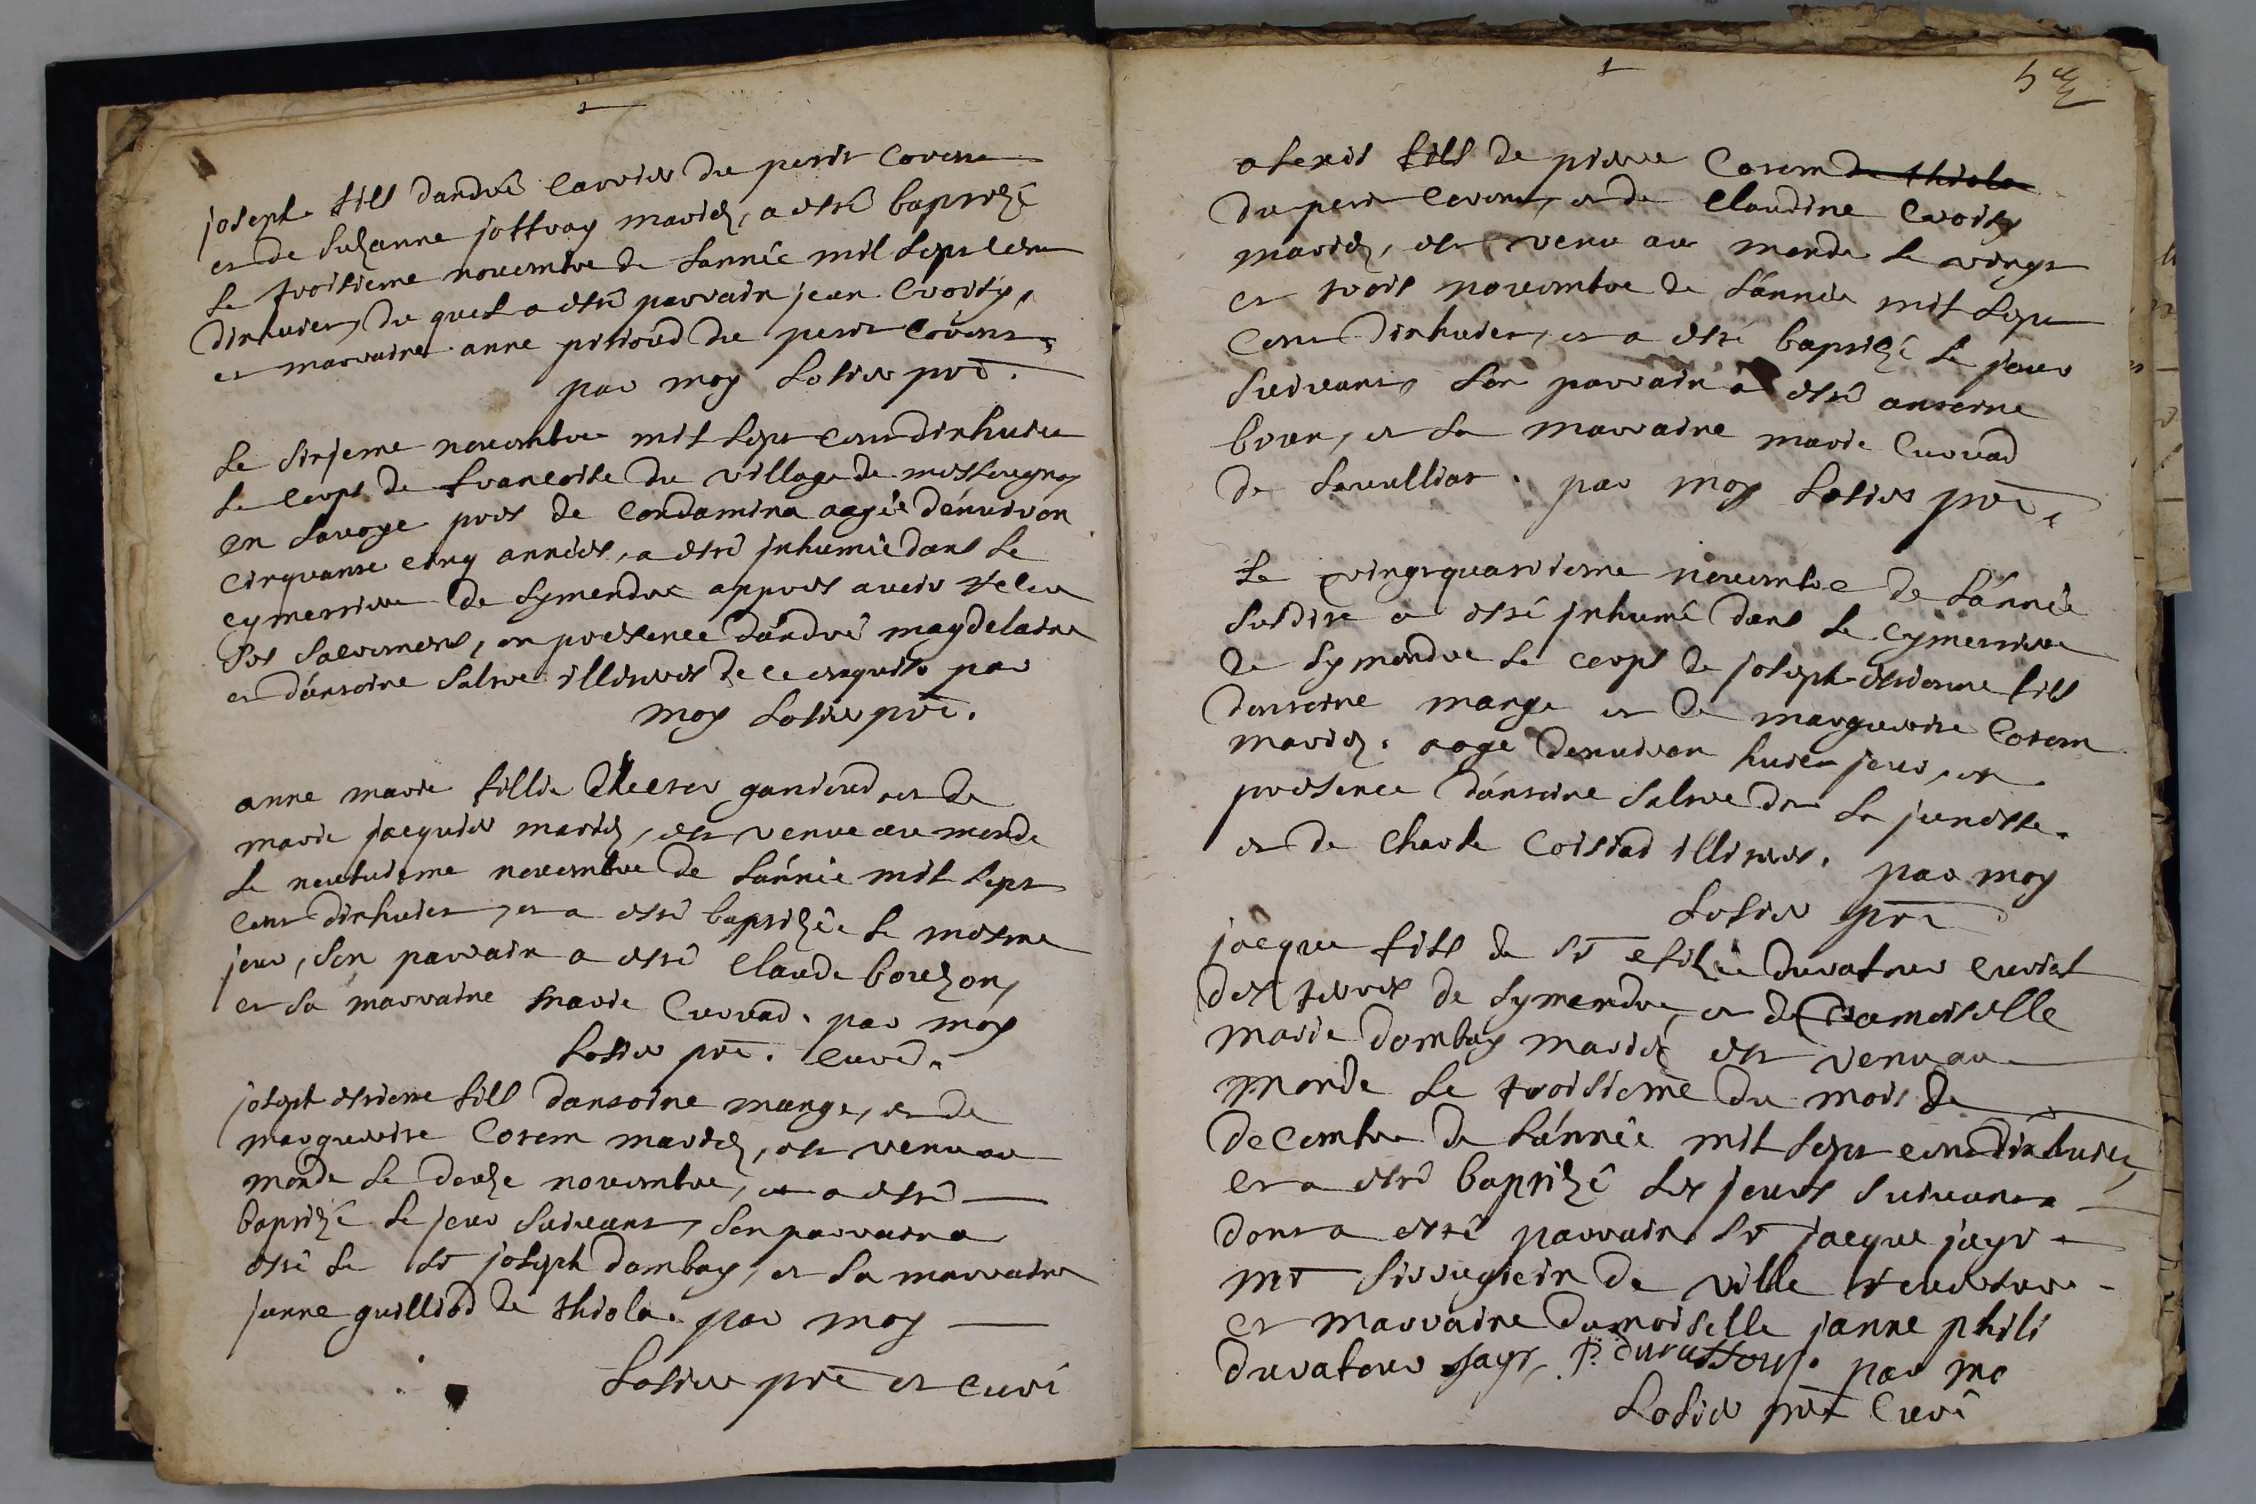 joseph fils dandré Carrier du petit Corent
et de Suzanne joffray mariez, a esté baptizé
le troisieme novembre de l'année mil sept cent
dixhuict, du quel a esté parrain jean Croisy,
et marraine anne pitioud du petit Corent,
par moy Losier pre.
Le sixjeme novembre mil sept cent dixhuict
le corps de francoise du village de
en Savoye pres de Condamina aagée d'environ
cinquante cinq années, a esté jnhumée dans le
cymettiere de Symendre appres avoir receu
les sacremens, en presence d'andré magdelaine
et d'antoine Salme illitérés de ce enquits par
moy Losier pre.
anne marie fillie gandoud, et de
marie jacquier mariez, est venue au monde
le neufuieme novembre de l'année mil sept
cent dixhuict, et a esté baptizée le mesme
jour, son parrain a esté Claude bouzon,
et sa marraine marie Curvad. par moy
Losier pre. curé.
joseph estienne fils dantoine mange, et de
marguerite Corem mariez, est venu au
monde le douze novembre, et a esté
baptizé le jour suivant, son parrain a
esté le sr joseph dombey, et sa marraine
janne guilliod de thiola. par moy
Losier pre et curé
5
alexis fils de pierre Corem de thiola
du petit Corent, et de Claudine Croisy
mariez, est venu au monde le vingt
et trois novembre de l'année mil sept
cent dixhuict, et a esté baptizé le jour
suivant, son parrain a esté antoine
bour, et sa marraine marie Curvad
de . par moy Losier pre.
Le vingtquatrieme novembre de l'année
susdite a esté jnhumé dans le cymettiere
de Symendre le corps de joseph-estienne fils
dantoine mange et de marguerite Corem
mariez. aagé denviron huict jour, en
presence d'antoine Salme de la junesse.
et de Charle Coistad illitérés. par moy
Losier pre
jacque fils de sr duratour curial
des terres de Symendre, et de Damoiselle
marie dombey mariez est venu au
monde le troisieme du mois de
decembre de l'année mil sept cent dixhuict,
et a esté baptizé les jours suivant
dont a esté parrain sr jacque jayr
mr sirugiein de ville
et marraine damoiselle janne phili
duratour jayr, P. duratour. par mo
Losier pret Curé